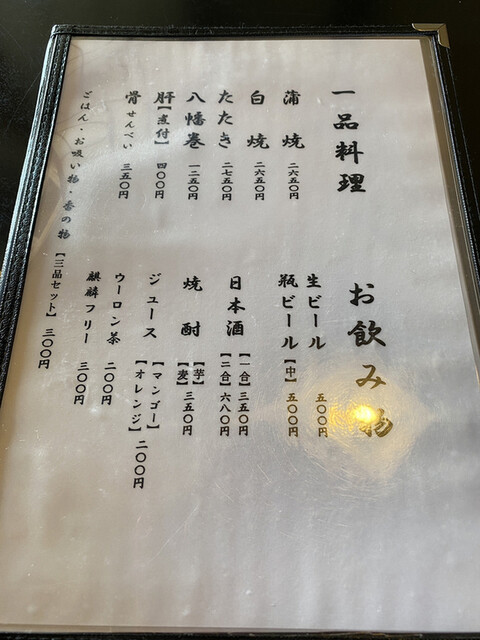 一品料理
蒲焼 二六五〇円
白焼 二六五〇円
たたき 二七五〇円
八幡巻 一二五〇円
肝【煮付】 四〇〇円
骨せんべい 三五〇円
ごはん・お吸い物・香の物【三品セット】 三〇〇円
お飲み物
生ビール 五〇〇円
瓶ビール【中】 五〇〇円
日本酒【一合】三五〇円
【二合】六八〇円
焼酎【芋】
【麦】 三五〇円
ジュース【マンゴー】
【オレンジ】 二〇〇円
ウーロン茶 二〇〇円
麒麟フリー 三〇〇円